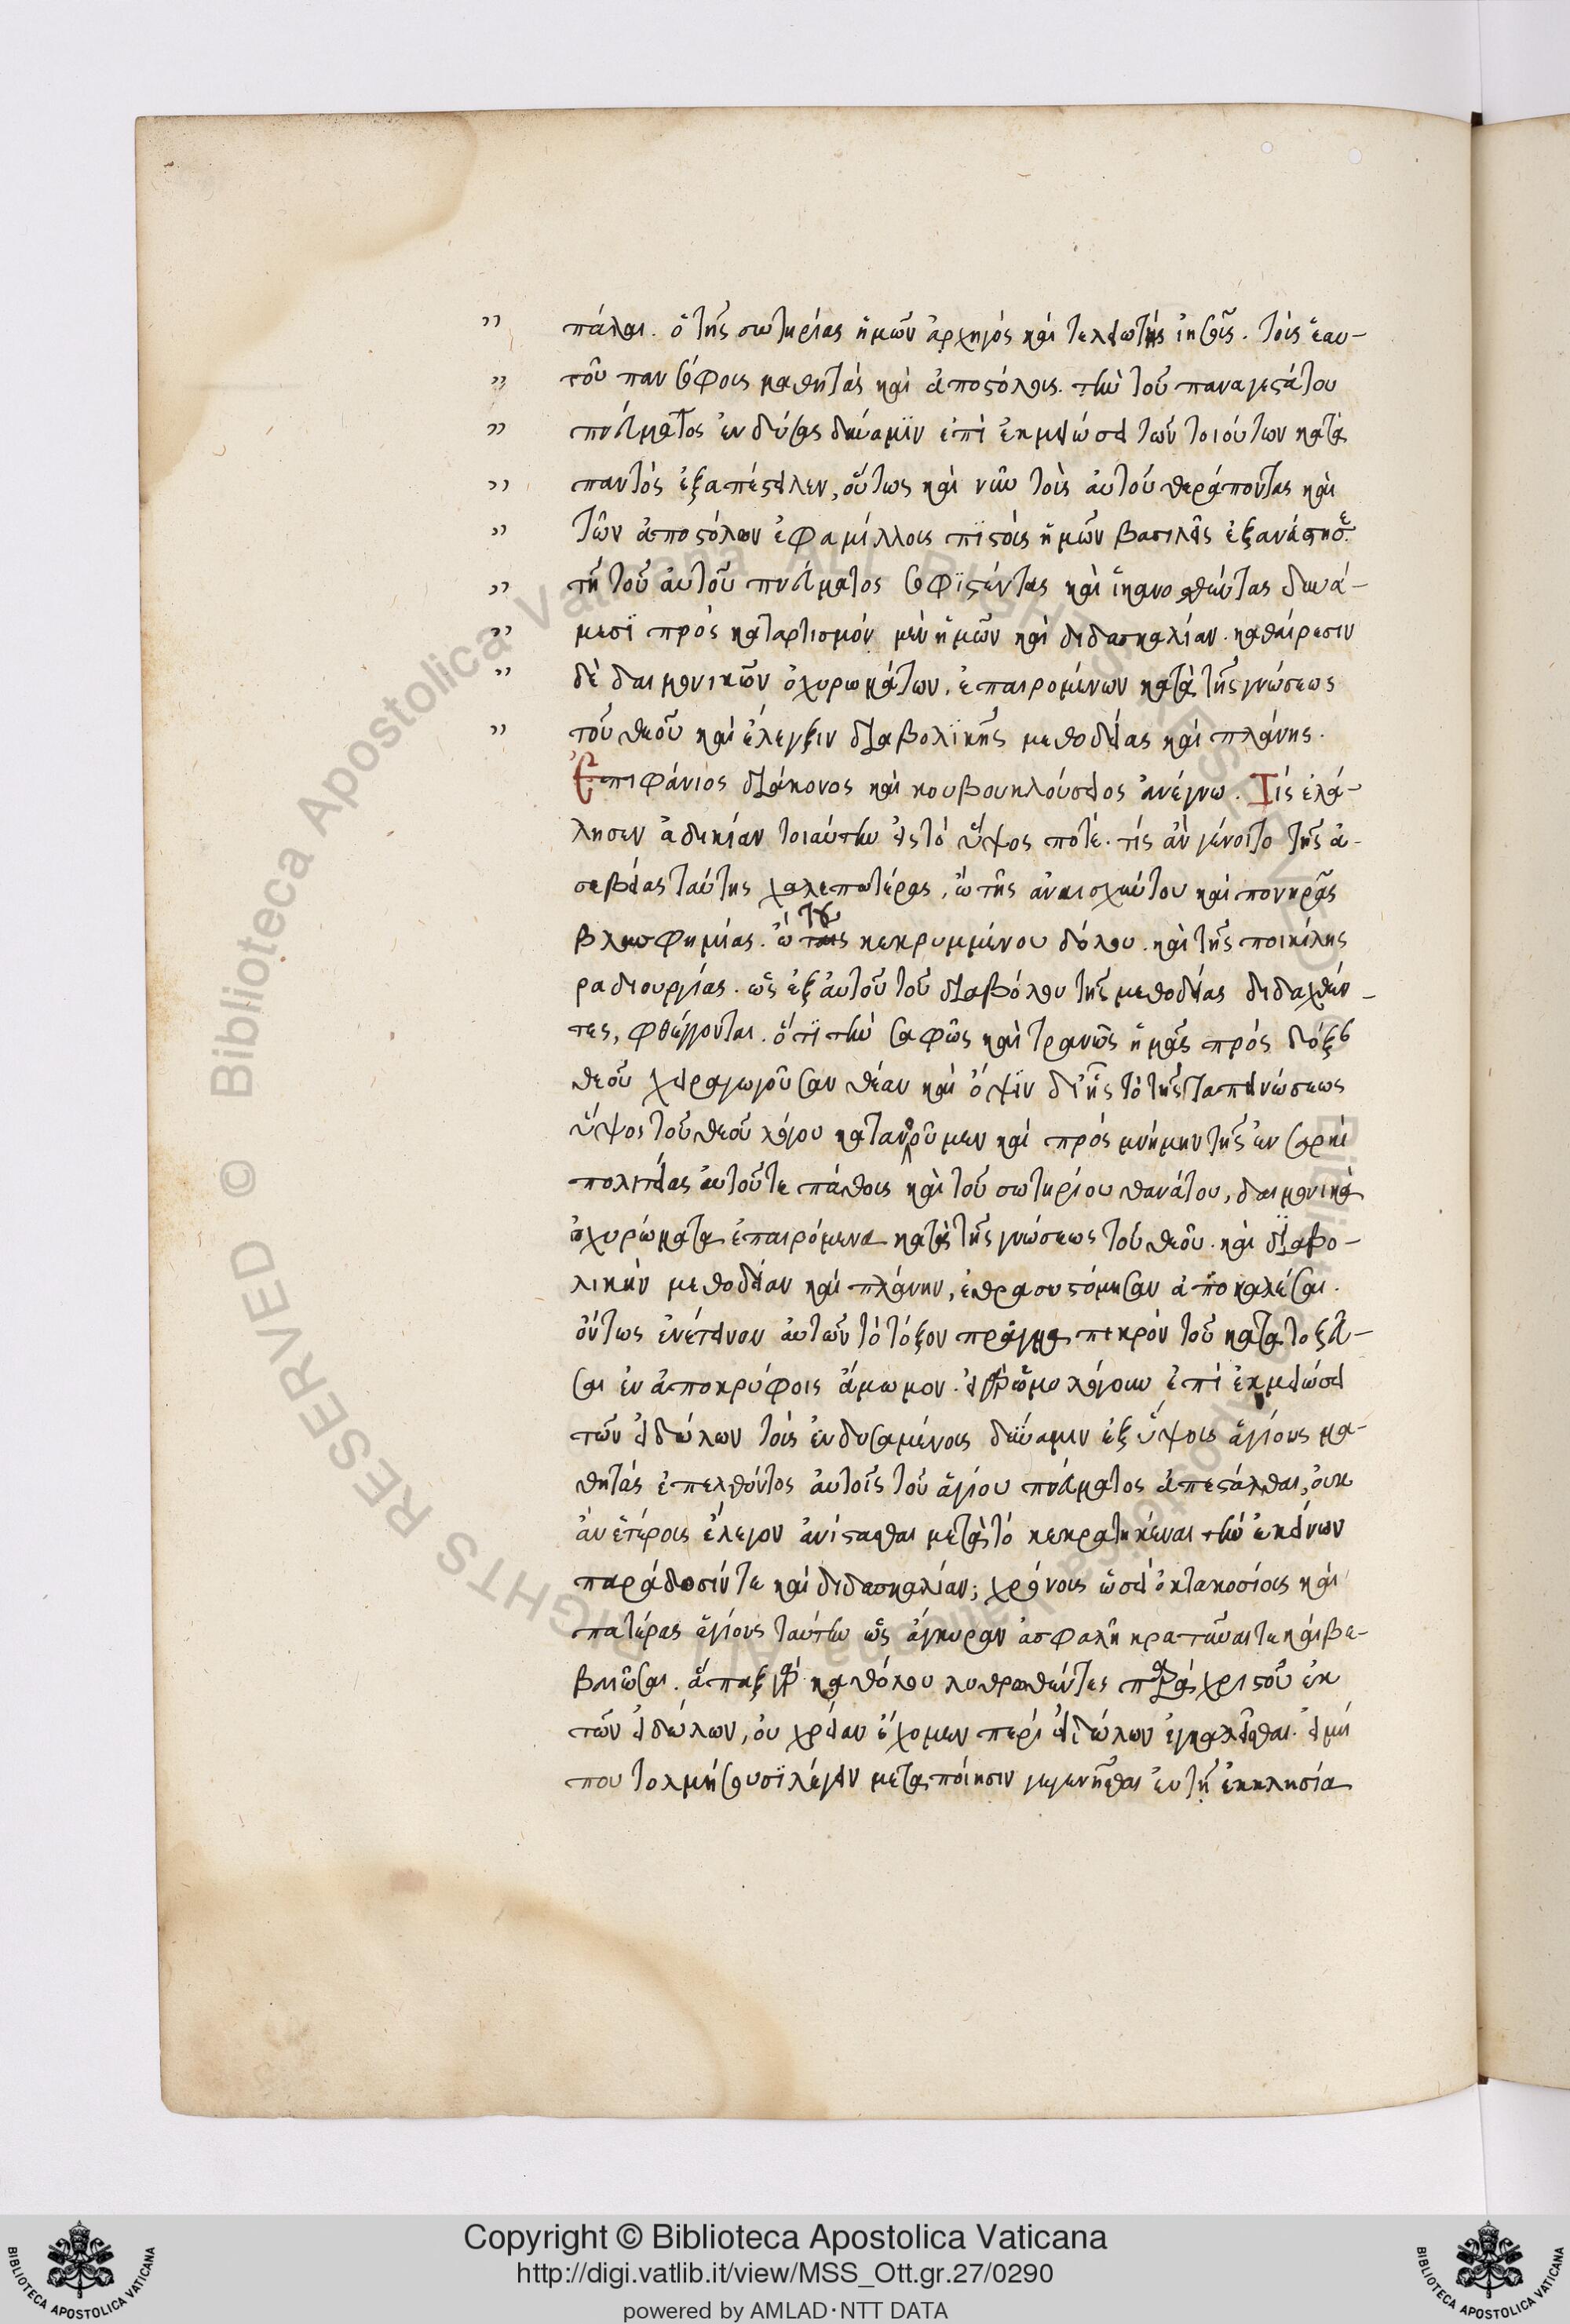 πάλαι. ὁ τῆς σωτηρίας ἡμῶν ἀρχηγὸς καὶ τελειωτὴς ἰησοῦς. τοὺς ἑαυ-
τοῦ πανσόφους μαθητὰς καὶ ἀποστόλους. τὴν τοῦ παναγεστάτου
πνεύματος ἐνδύσας δύναμϊν ἐπὶ ἐκμειώσει τῶν τοιούτων κατὰ
παντὸς ἐξαπέστειλεν, οὕτως καὶ νῦν τοὺς αὐτοῦ θεράποντας καὶ
τῶν ἀποστόλων ἐφαμίλλους πϊστοὺς ἡμῶν βασιλεῖς ἐξανέστησε.
τῇ τοῦ αὐτοῦ πνεύματος σοφϊσθέντας καὶ ἱκανοθέντας δυνά-
μεσϊ πρὸς καταρτισμόν μὲν ἡμῶν καὶ διδασκαλίαν. καθαίρεσιν
δὲ δαιμονικῶν ὀχυρωμάτων, ἐπαιρομένων κατὰ τῆς γνώσεως
τοῦ θεοῦ καὶ ἔλεγξιν διαβολϊκῆς μεθοδείας καὶ πλάνης.
Ἐπιφάνιος διάκονος καὶ κουβουκλούσιος ἀνέγνω. Τίς ἐλά-
λησεν ἀδικίαν τοιαύτην εἰς τὸ ὕψος ποτέ. τίς ἂν γένοιτο τῆς ἀ-
σεβείας ταύτης χαλεπωτέρας, ὢ τῆς ἀναισχύντου καὶ πονηρᾶς
βλασφημίας. ὢ τοῦ κεκρυμμένου δόλου. καὶ τῆς ποικίλης
ραδιουργίας. ὡς ἐξ αὐτοῦ τοῦ διαβόλου τῆς μεθοδείας διδαχθέν-
τες, φθέγγονται. ὅτϊ τὴν σαφῶς καὶ τρανῶς ἡμᾶς πρὸς δόξαν
θεοῦ χειραγωγοῦσαν θέαν καὶ ὄψϊν δι' ἧς τὸ τῆς ταπεινώσεως
ὕψος τοῦ θεοῦ λόγου κατανοοῦμεν καὶ πρὸς μνήμην τῆς ἐν σαρκὶ
πολιτείας αὐτοῦ τε πάθους καὶ τοῦ σωτηρίου θανάτου, δαιμονικὰ
ὀχυρώματα ἐπαιρόμενα κατὰ τῆς γνώσεως τοῦ θεοῦ. καὶ διαβο-
λικὴν μεθοδείαν καὶ πλάνην, ἐθρασυστόμησαν ἀποκαλέσαι.
ὄντως ἐνέτεινον αὐτῶν τὸ τόξον πρᾶγμα πικρὸν τοῦ κατατοξεῦ-
σαι ἐν ἀποκρύφοις ἄμωμον. εἰ γὰρ ὡμολόγουν ἐπὶ ἐκμειώσει
τῶν εἰδώλων τοὺς ἐνδυσαμένους δύναμιν ἐξ ὕψους ἁγίους μα-
θητὰς ἐπελθόντος αὐτοῖς τοῦ ἁγίου πνεύματος ἀπεστάλθαι, οὐκ
ἂν ἑτέρους ἔλεγον ἀνίστασθαι μετὰ τὸ κεκρατηκέναι τὴν ἐκείνων
παράδοσίν τε καὶ διδασκαλίαν; χρόνους ὡσεὶ ὀκτακοσίους καὶ
πατέρας ἁγίους ταύτην ὡς ἄγκυραν ἀσφαλῆ κρατῦναι τε καὶ βε-
βαιῶσαι. ἅπαξ γὰρ καθόλου λυθρωθέντες παρὰ χριστοῦ ἐκ
τῶν εἰδώλων, οὐ χρείαν ἔχομεν περὶ εἰδώλων ἐγκαλεῖσθαι. εἰ μή
που τολμήσουσϊ λέγειν μεταποίησιν γεγενῆσθαι ἐν τῇ ἐκκλησία
Copyright © Biblioteca Apostolica Vaticana
http://digi.vatlib.it/view/MSS_Ott.gr.27/0290
powered by AMLAD·NTT DATA